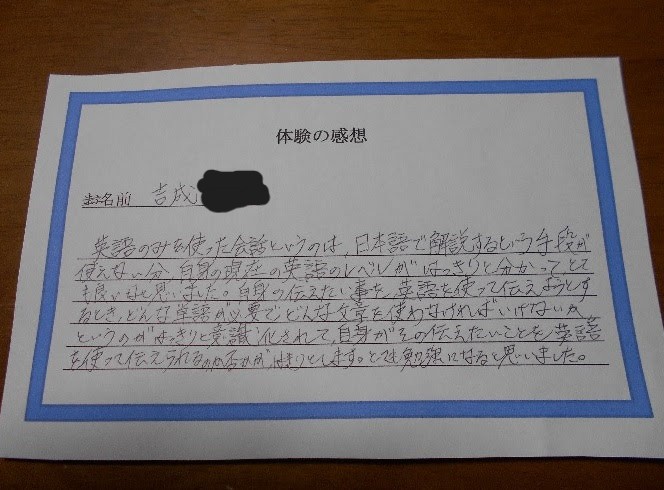 体験の感想
お名前 吉成
英語のみを使った会話というのは、日本語で解説するという手段が
使えない分、自身の現在の英語のレベルがはっきりと分かって、とて
も良いなと思いました。自身の伝えたい事を、英語を使って伝えようとす
るとき、どんな単語が必要でどんな文章を使わなければいけないか
というのがはっきりと意識化されて、自身がその伝えたいことを英語
を使って伝えられるのかがはっきりとします。とても勉強になると思いました。